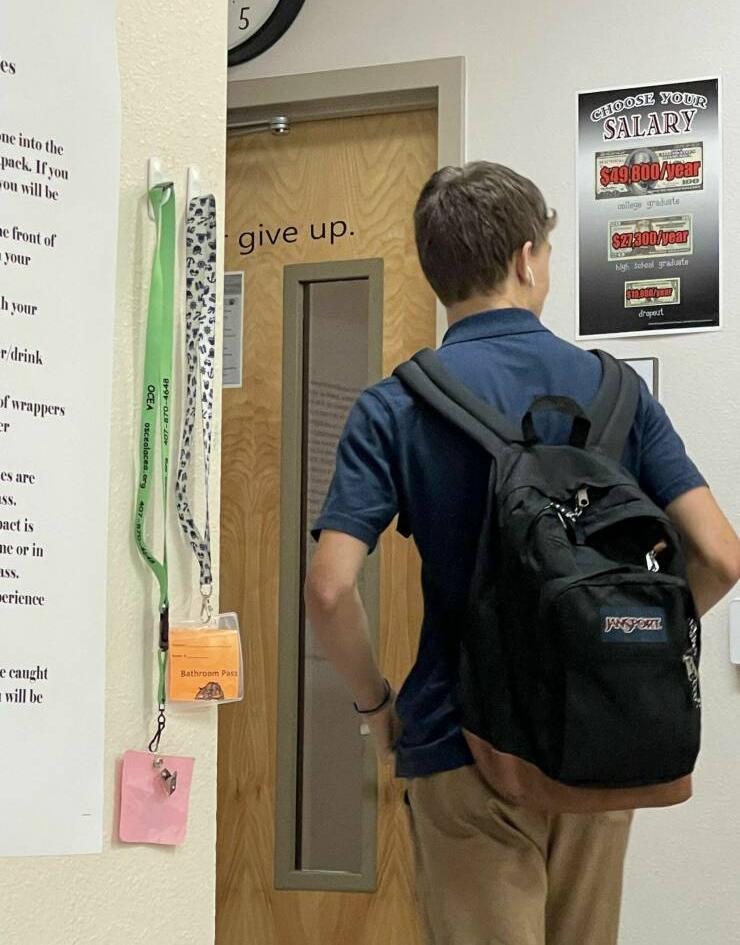 5
es
one into the
pack. If you
you will be
he front of
your
h your
r/drink
of wrappers
er
es are
ss.
pact is
me or in
ass.
perience
e caught
will be
OCEA osceolacea.org
give up.
Bathroom Pass
CHOOSE YOUR
SALARY
$49,800/year
100
college graduate
$27,300/year
high school graduate
dropout
JANSPORT